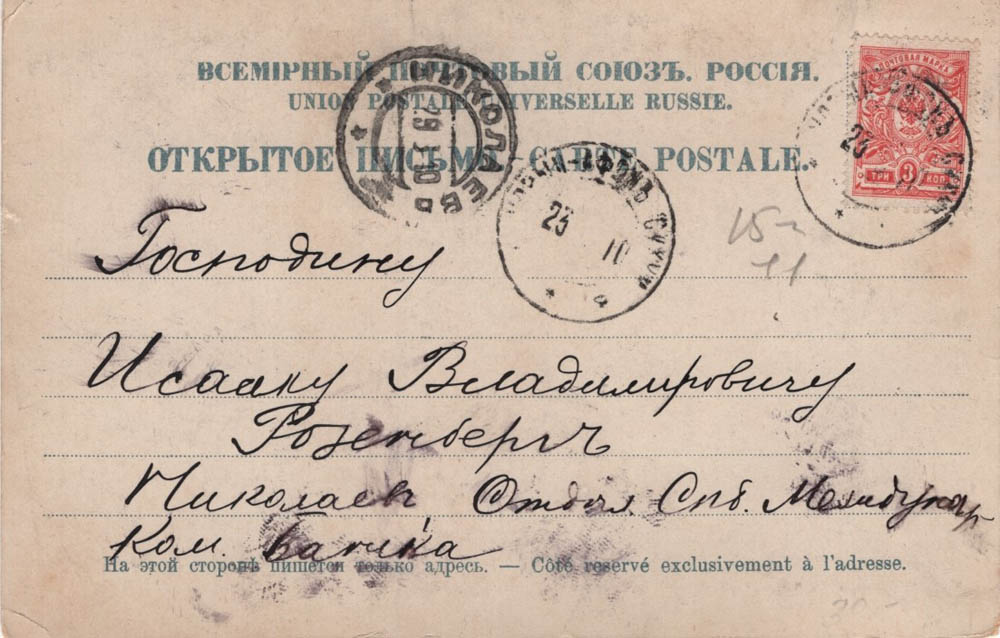 ВСЕМІРНЫЙ ПОЧТОВЫЙ СОЮЗЪ. РОССІЯ.
UNION POSTALE UNIVERSELLE RUSSIE.
ОТКРЫТОЕ ПИСЬМО. — CARTE POSTALE.
ПОЧТОВАЯ МАРКА
ТРИ 3 КОП
НИКОЛАЕВЪ
НОВЫЙ-АФОНЪ СУХУМ
23
10
23
Господину
15-
11
Исааку Владимировичу
Розенбергъ
Николаевъ, Отдѣл. Спб. Междунар
Ком. банка
На этой сторонѣ пишется только адресъ. — Côté réservé exclusivement à l'adresse.